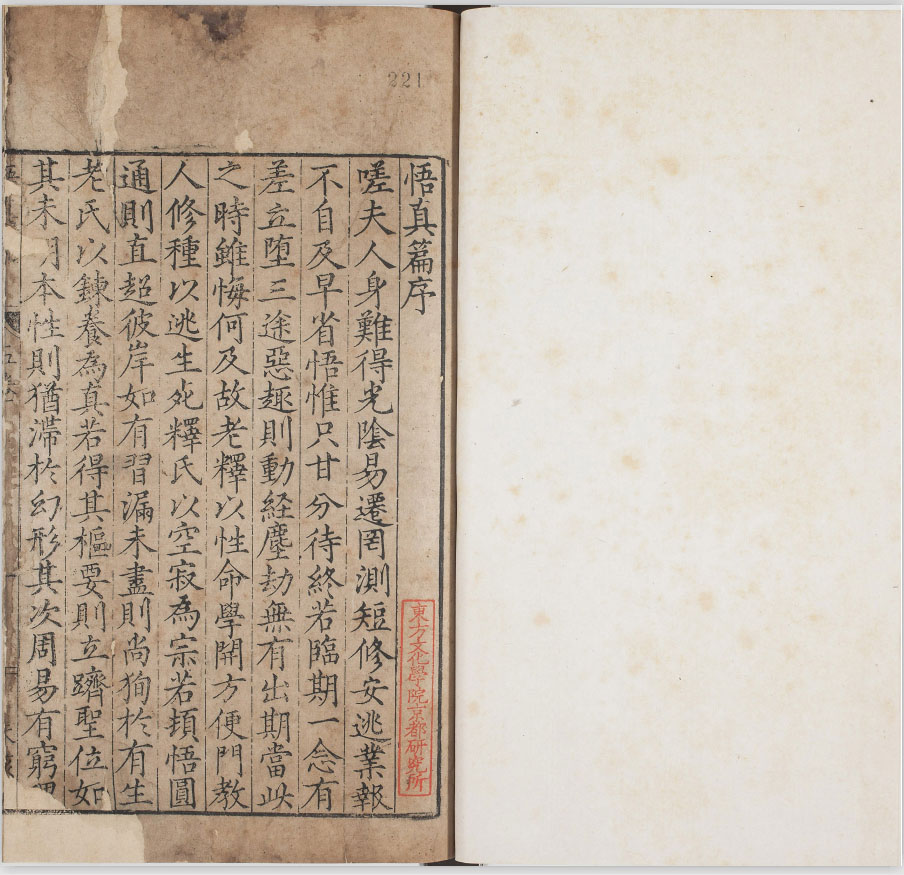 221
悟真篇序
嗟夫人身難得光陰易遷罔測短修安逃業報
不自及早省悟惟只甘分待終若臨期一念有
差立墮三途惡趣則動経塵劫無有出期當此
之時雖悔何及故老釋以性命學開方便門教
人修種以逃生死釋氏以空寂為宗若頓悟圓
通則直超彼岸如有習漏未盡則尚狥於有生
老氏以鍊養為真若得其樞要則立躋聖位如
其未明本性則猶滯於幻形其次周易有窮理
東方文化學院京都研究所